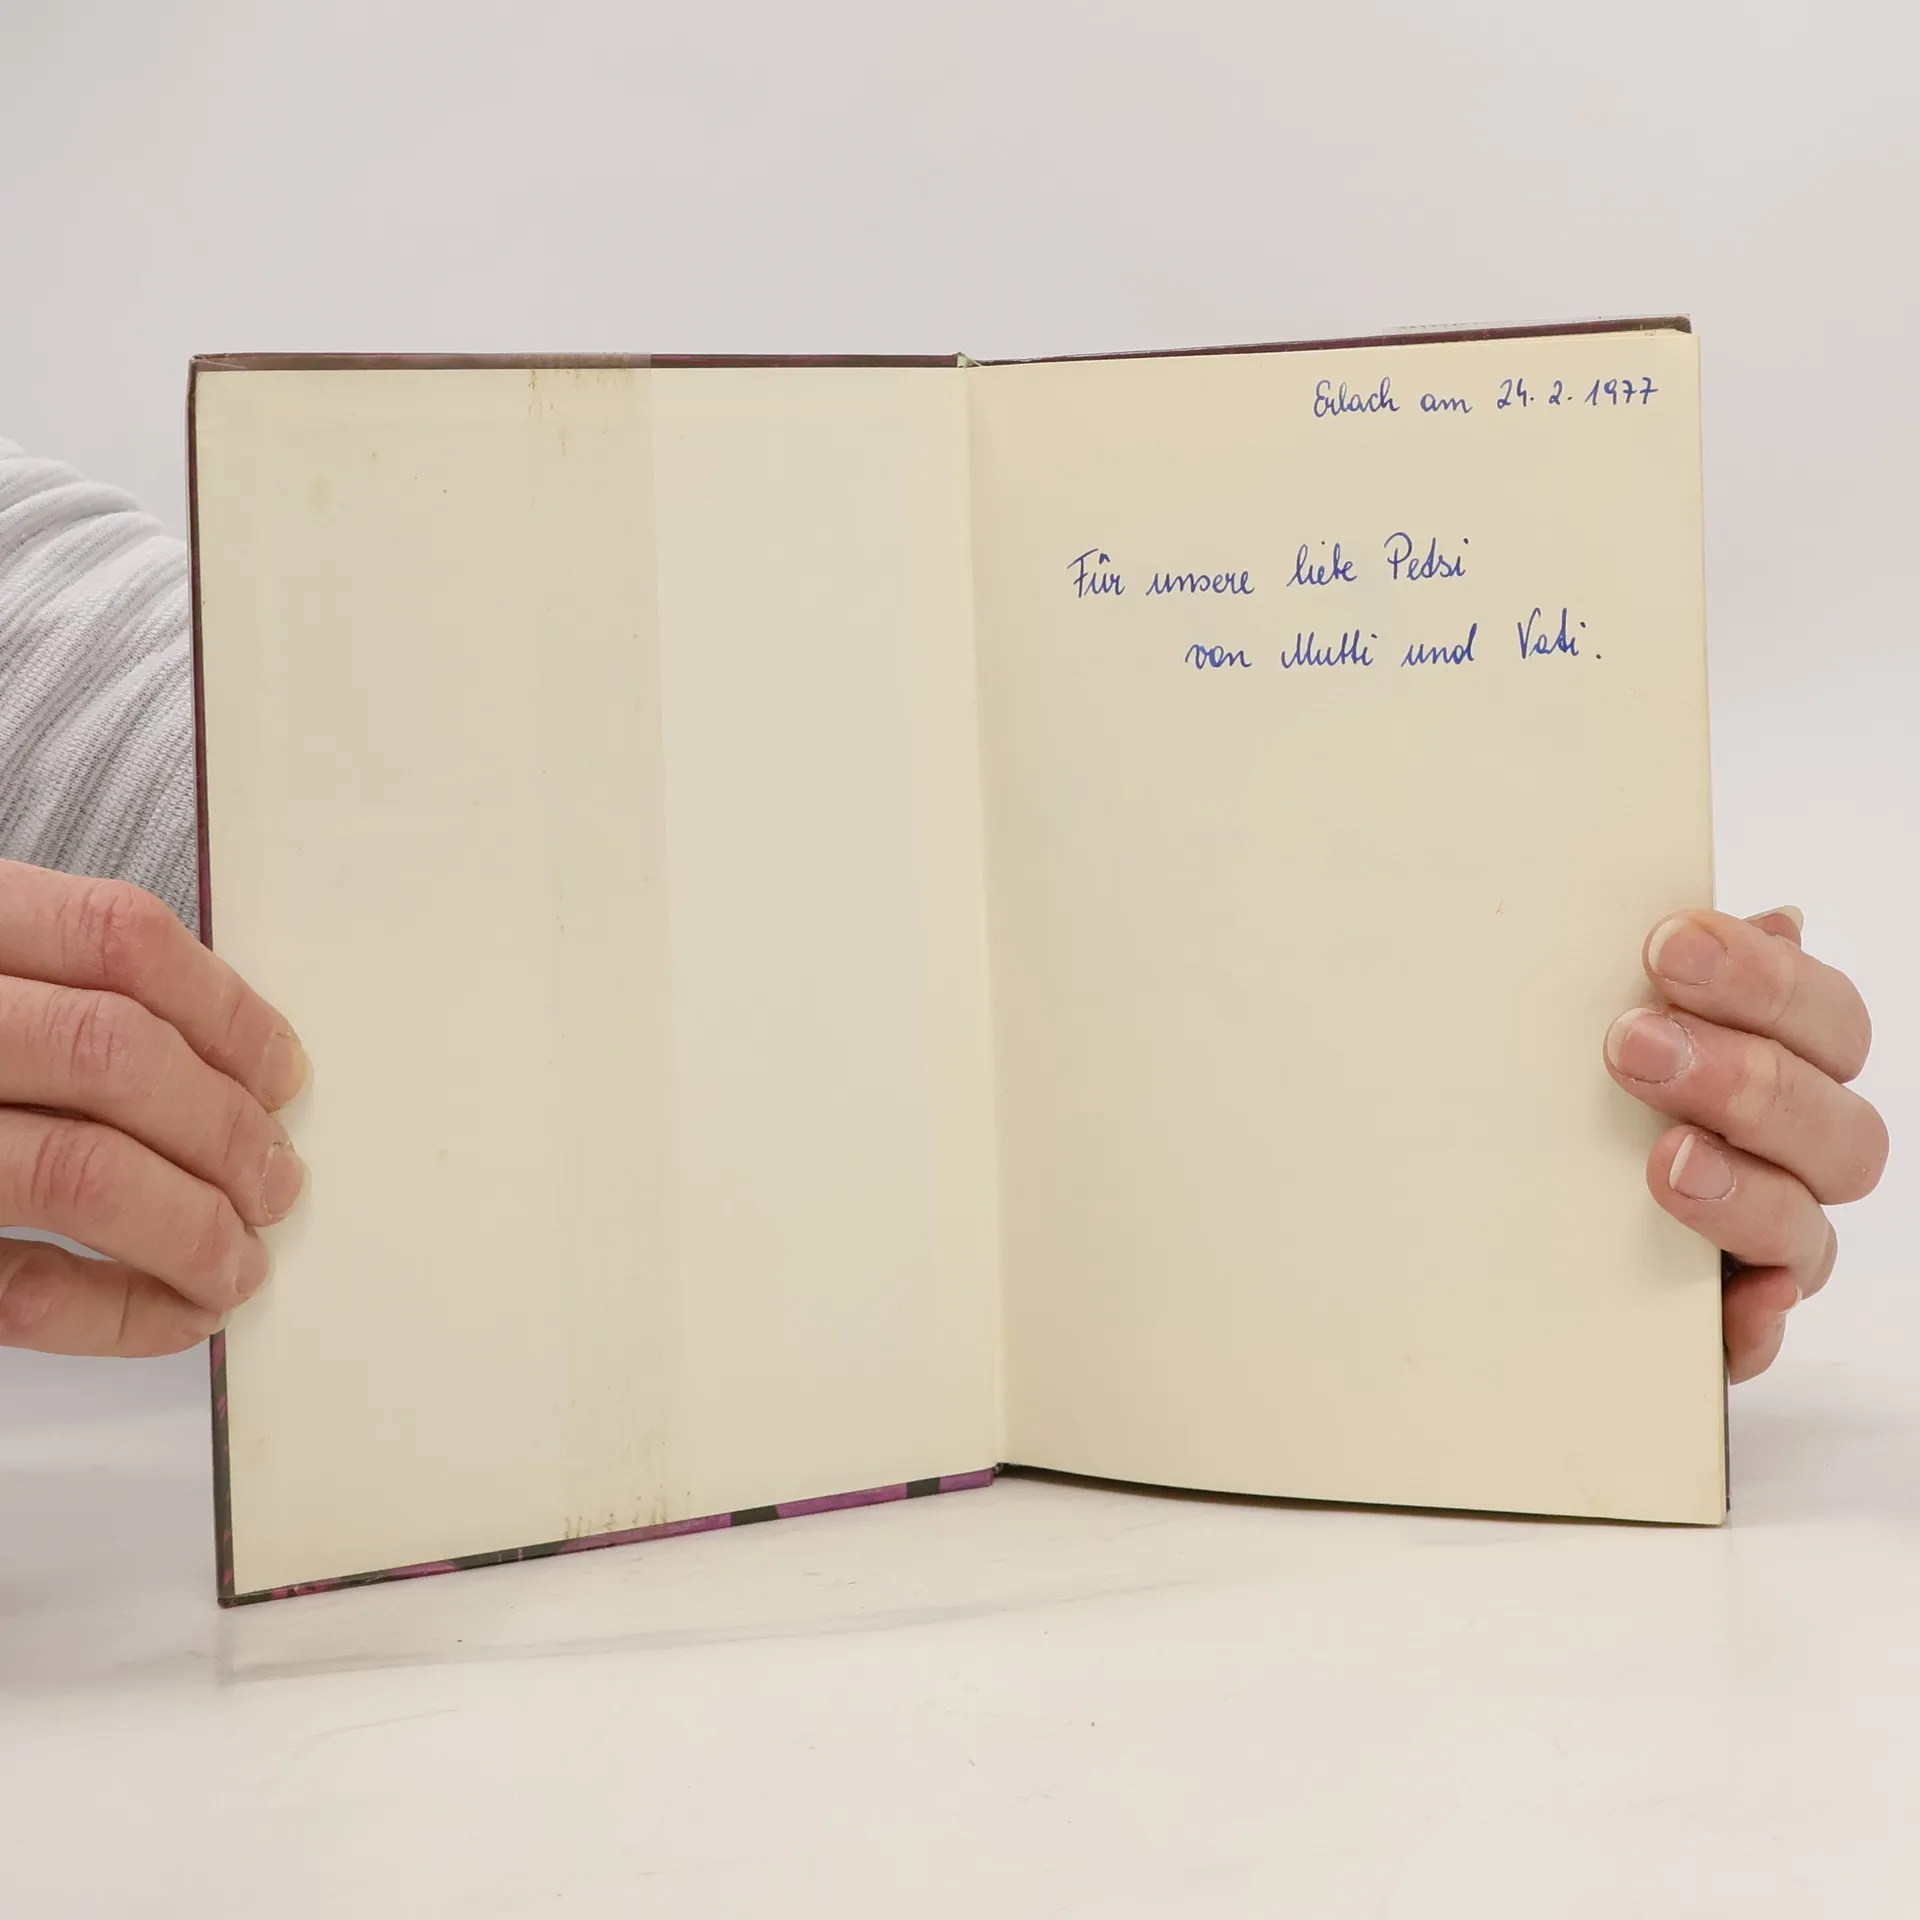 Erlach am 24. 2. 1977
Für unsere liebe Petsi
von Mutti und Vati.